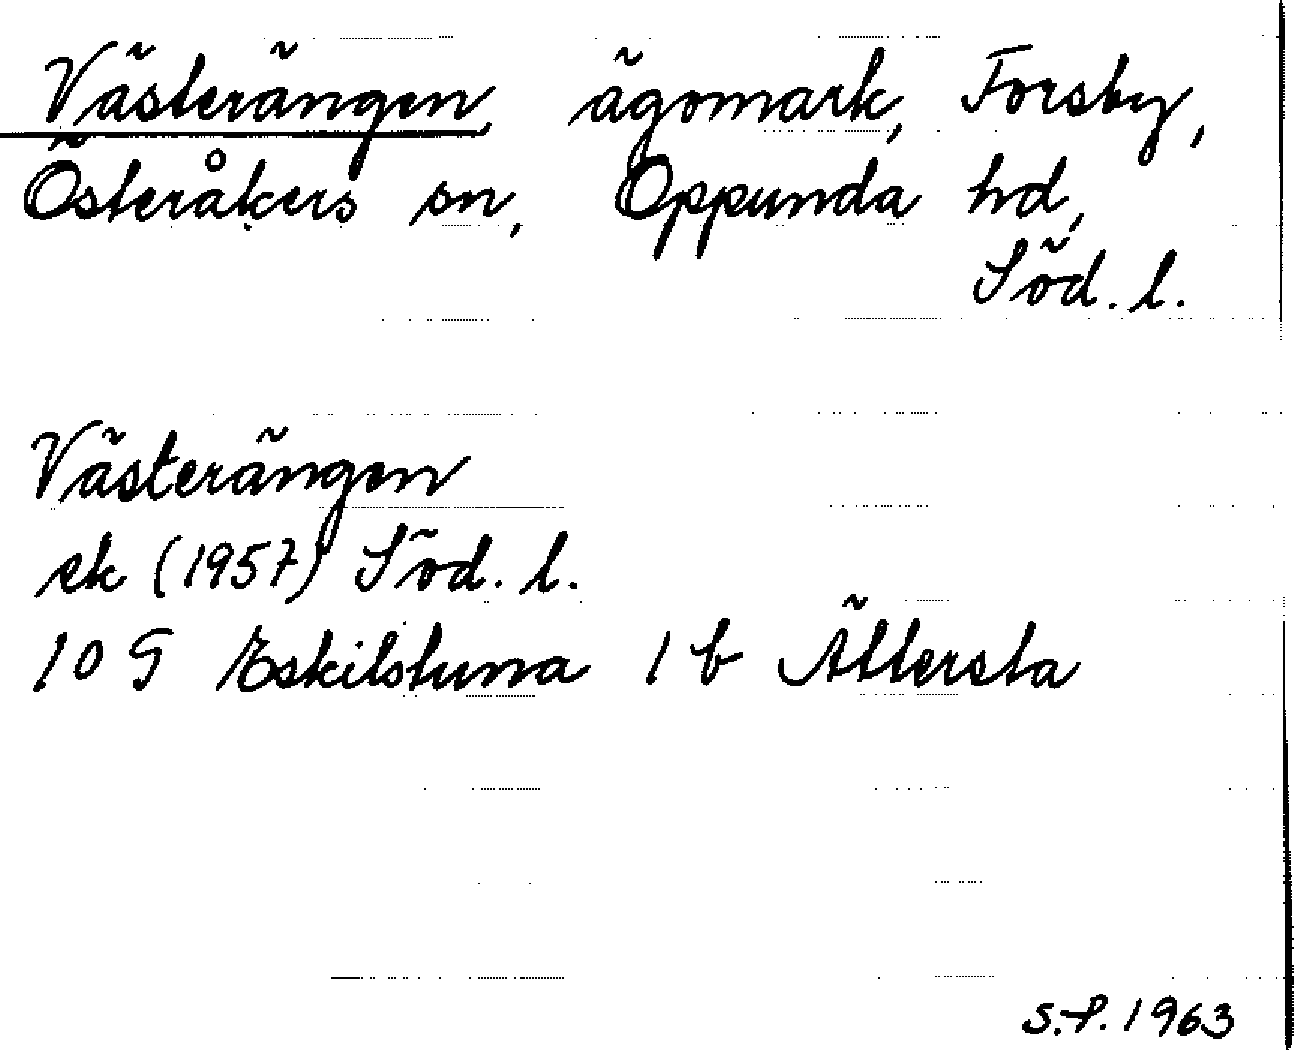 Västerängen, ägomark, Forsby,
Österåkers sn, Oppunda hd,
Söd. l.
Västerängen
ek (1957) Söd. l.
10 G Eskilstuna 1 b Ättersta
S.-P. 1963